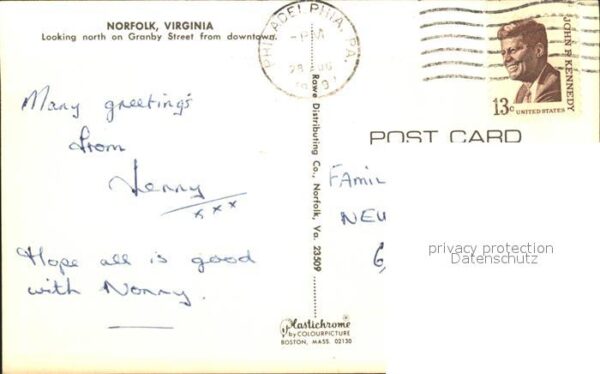 NORFOLK, VIRGINIA
Looking north on Granby Street from downtown.
Many greetings
from
Lenny
xxx
Hope all is good
with Nonny.
Rowe Distributing Co., Norfolk, Va. 23509
Plastichrome
by COLOURPICTURE
BOSTON, MASS. 02130
PHILADELPHIA, PA.
PM
JOHN F. KENNEDY
13c UNITED STATES
POST CARD
FAMIL
NEU
privacy protection
Datenschutz